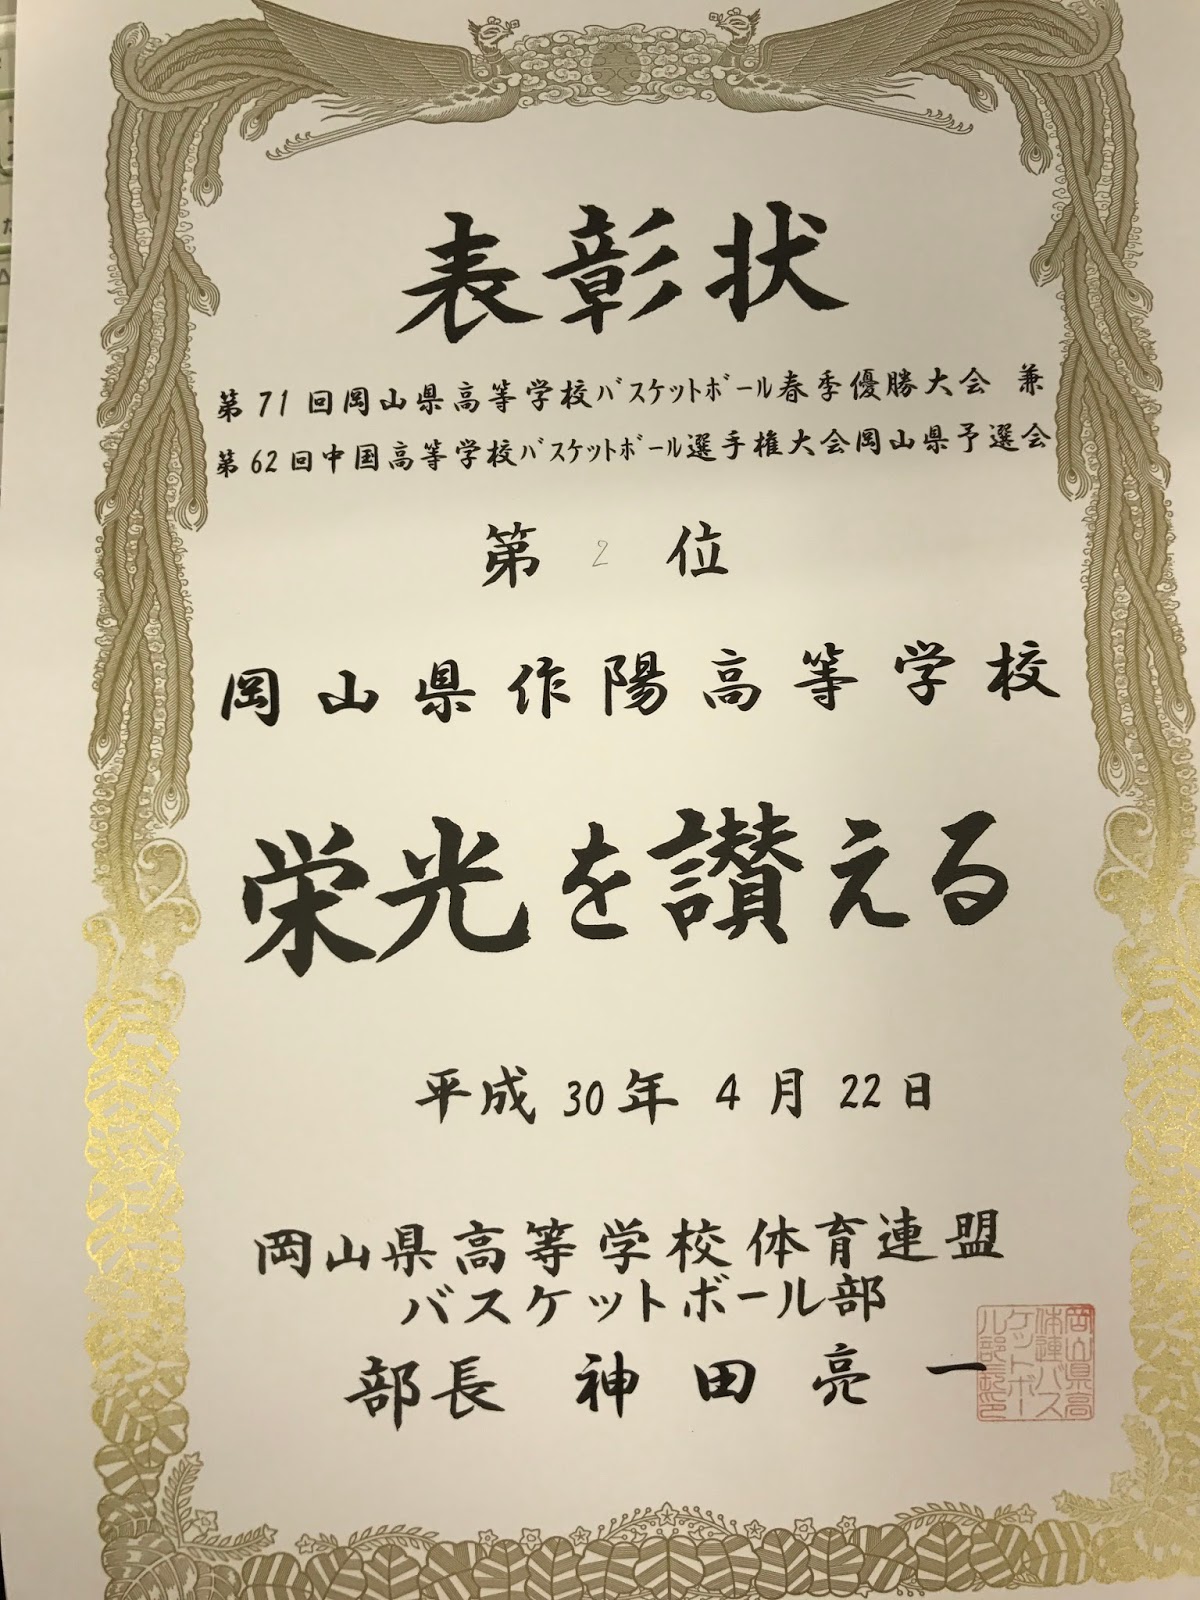 表彰状
第71回岡山県高等学校バスケットボール春季優勝大会 兼
第62回中国高等学校バスケットボール選手権大会岡山県予選会
第 2 位
岡山県作陽高等学校
栄光を讃える
平成30年4月22日
岡山県高等学校体育連盟
バスケットボール部
部長 神田亮一
岡山県高
体連バス
ケットボー
ル部長印